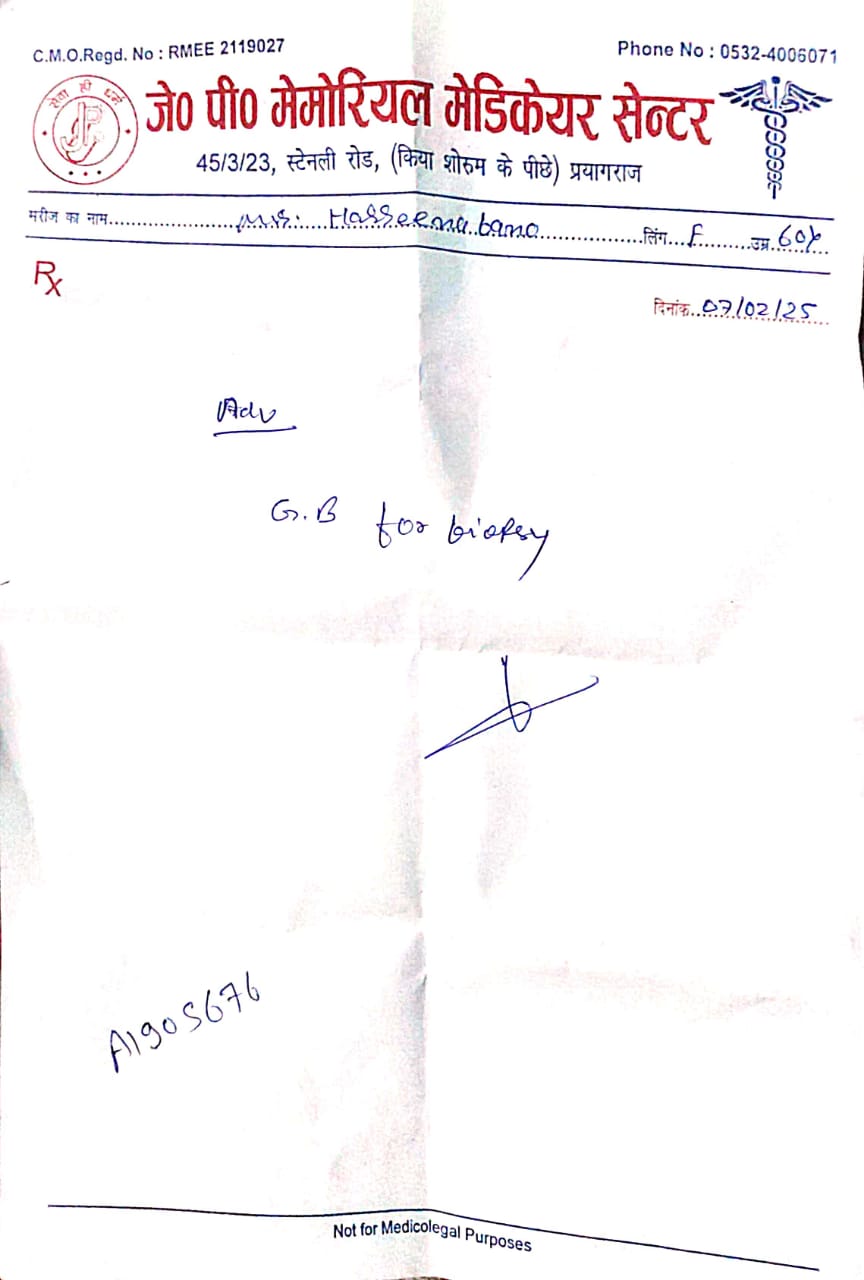 C.M.O.Regd. No : RMEE 2119027
Phone No : 0532-4006071
सेवा ही धर्म
जे० पी० मेमोरियल मेडिकेयर सेन्टर
45/3/23, स्टेनली रोड, (किया शोरुम के पीछे) प्रयागराज
मरीज का नाम....Mrs. Hasseena bano....लिंग...F....उम्र 60Y
Rx
दिनांक..07/02/25
Adv
G.B for biopsy
A1905676
Not for Medicolegal Purposes